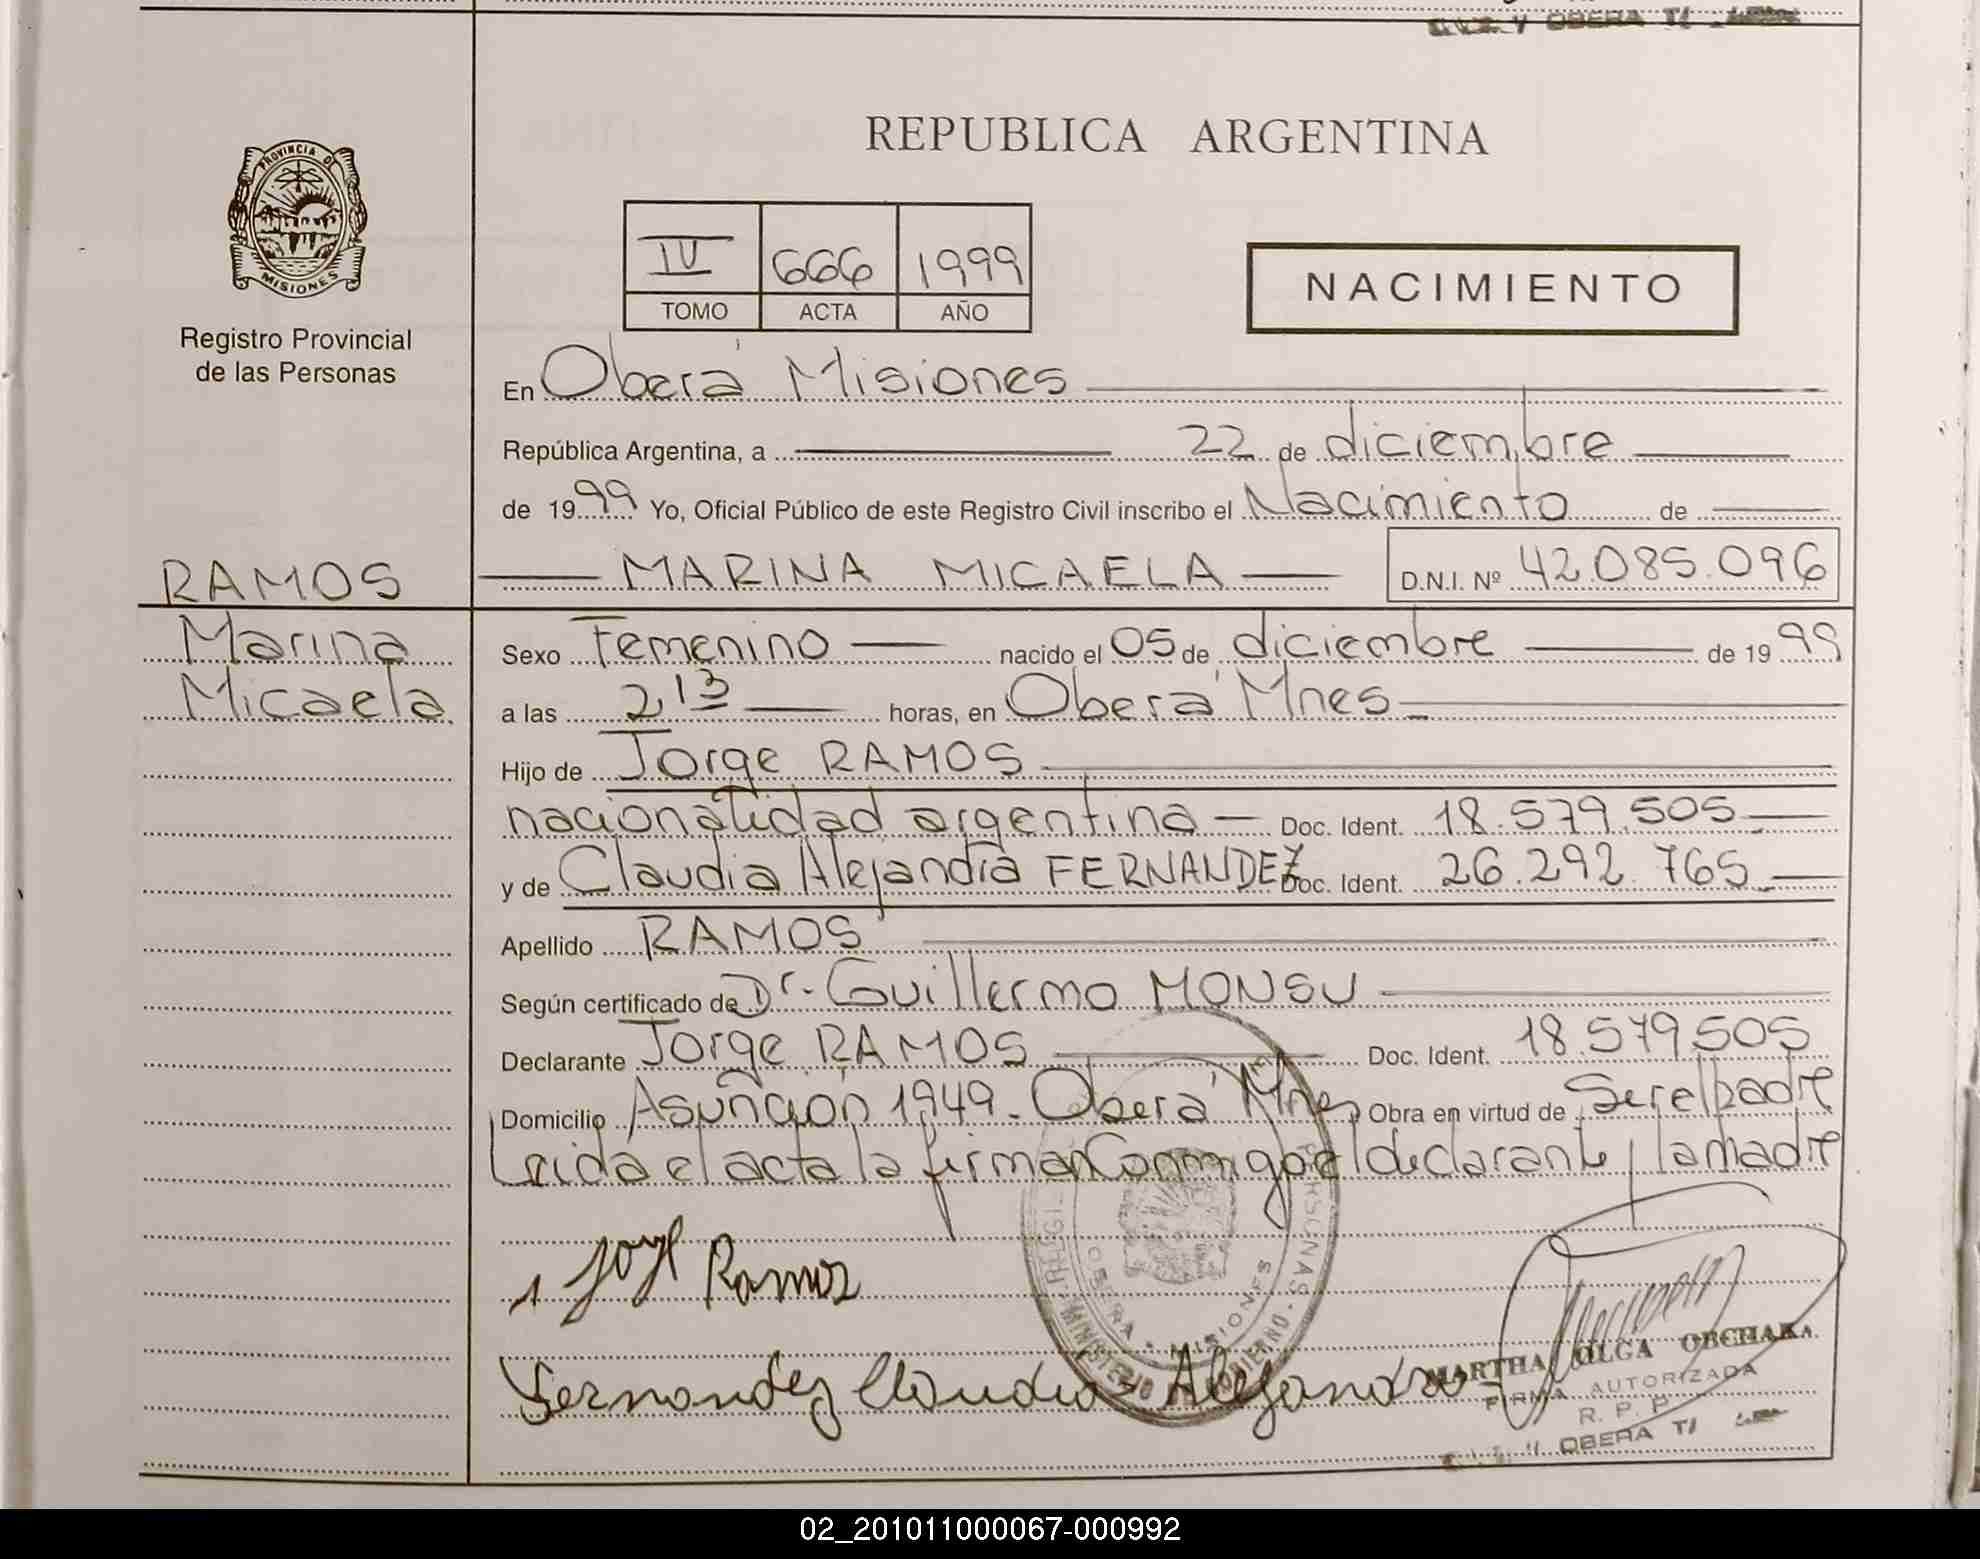 OBERA
REPUBLICA ARGENTINA
PROVINCIA DE
MISIONES
Registro Provincial
de las Personas
IV 666 1999
TOMO ACTA AÑO
NACIMIENTO
En Oberá Misiones
República Argentina, a 22 de diciembre
de 1999 Yo, Oficial Público de este Registro Civil inscribo el Nacimiento de
RAMOS
MARINA MICAELA D.N.I. Nº 42.085.096
Marina
Micaela
Sexo Femenino nacido el 05 de diciembre de 1999
a las 2,13 horas, en Oberá Mnes
Hijo de Jorge RAMOS
nacionalidad argentina Doc. Ident. 18.579.505
y de Claudia Alejandra FERNANDEZ Doc. Ident. 26.292.765
Apellido RAMOS
Según certificado de Dr. Guillermo MONSU
Declarante Jorge RAMOS Doc. Ident. 18.579.505
Domicilio Asunción 1949. Oberá Mnes Obra en virtud de Ser el padre
Leida el acta la firman Conmigo el declarante y la madre
Jorge Ramos
Fernandez Claudia Alejandra
PERSONAS
OBERA MISIONES
MINISTERIO DE GOBIERNO
MARTHA OLGA OBCHAKA
FIRMA AUTORIZADA
R. P. P.
OBERA
02_201011000067-000992